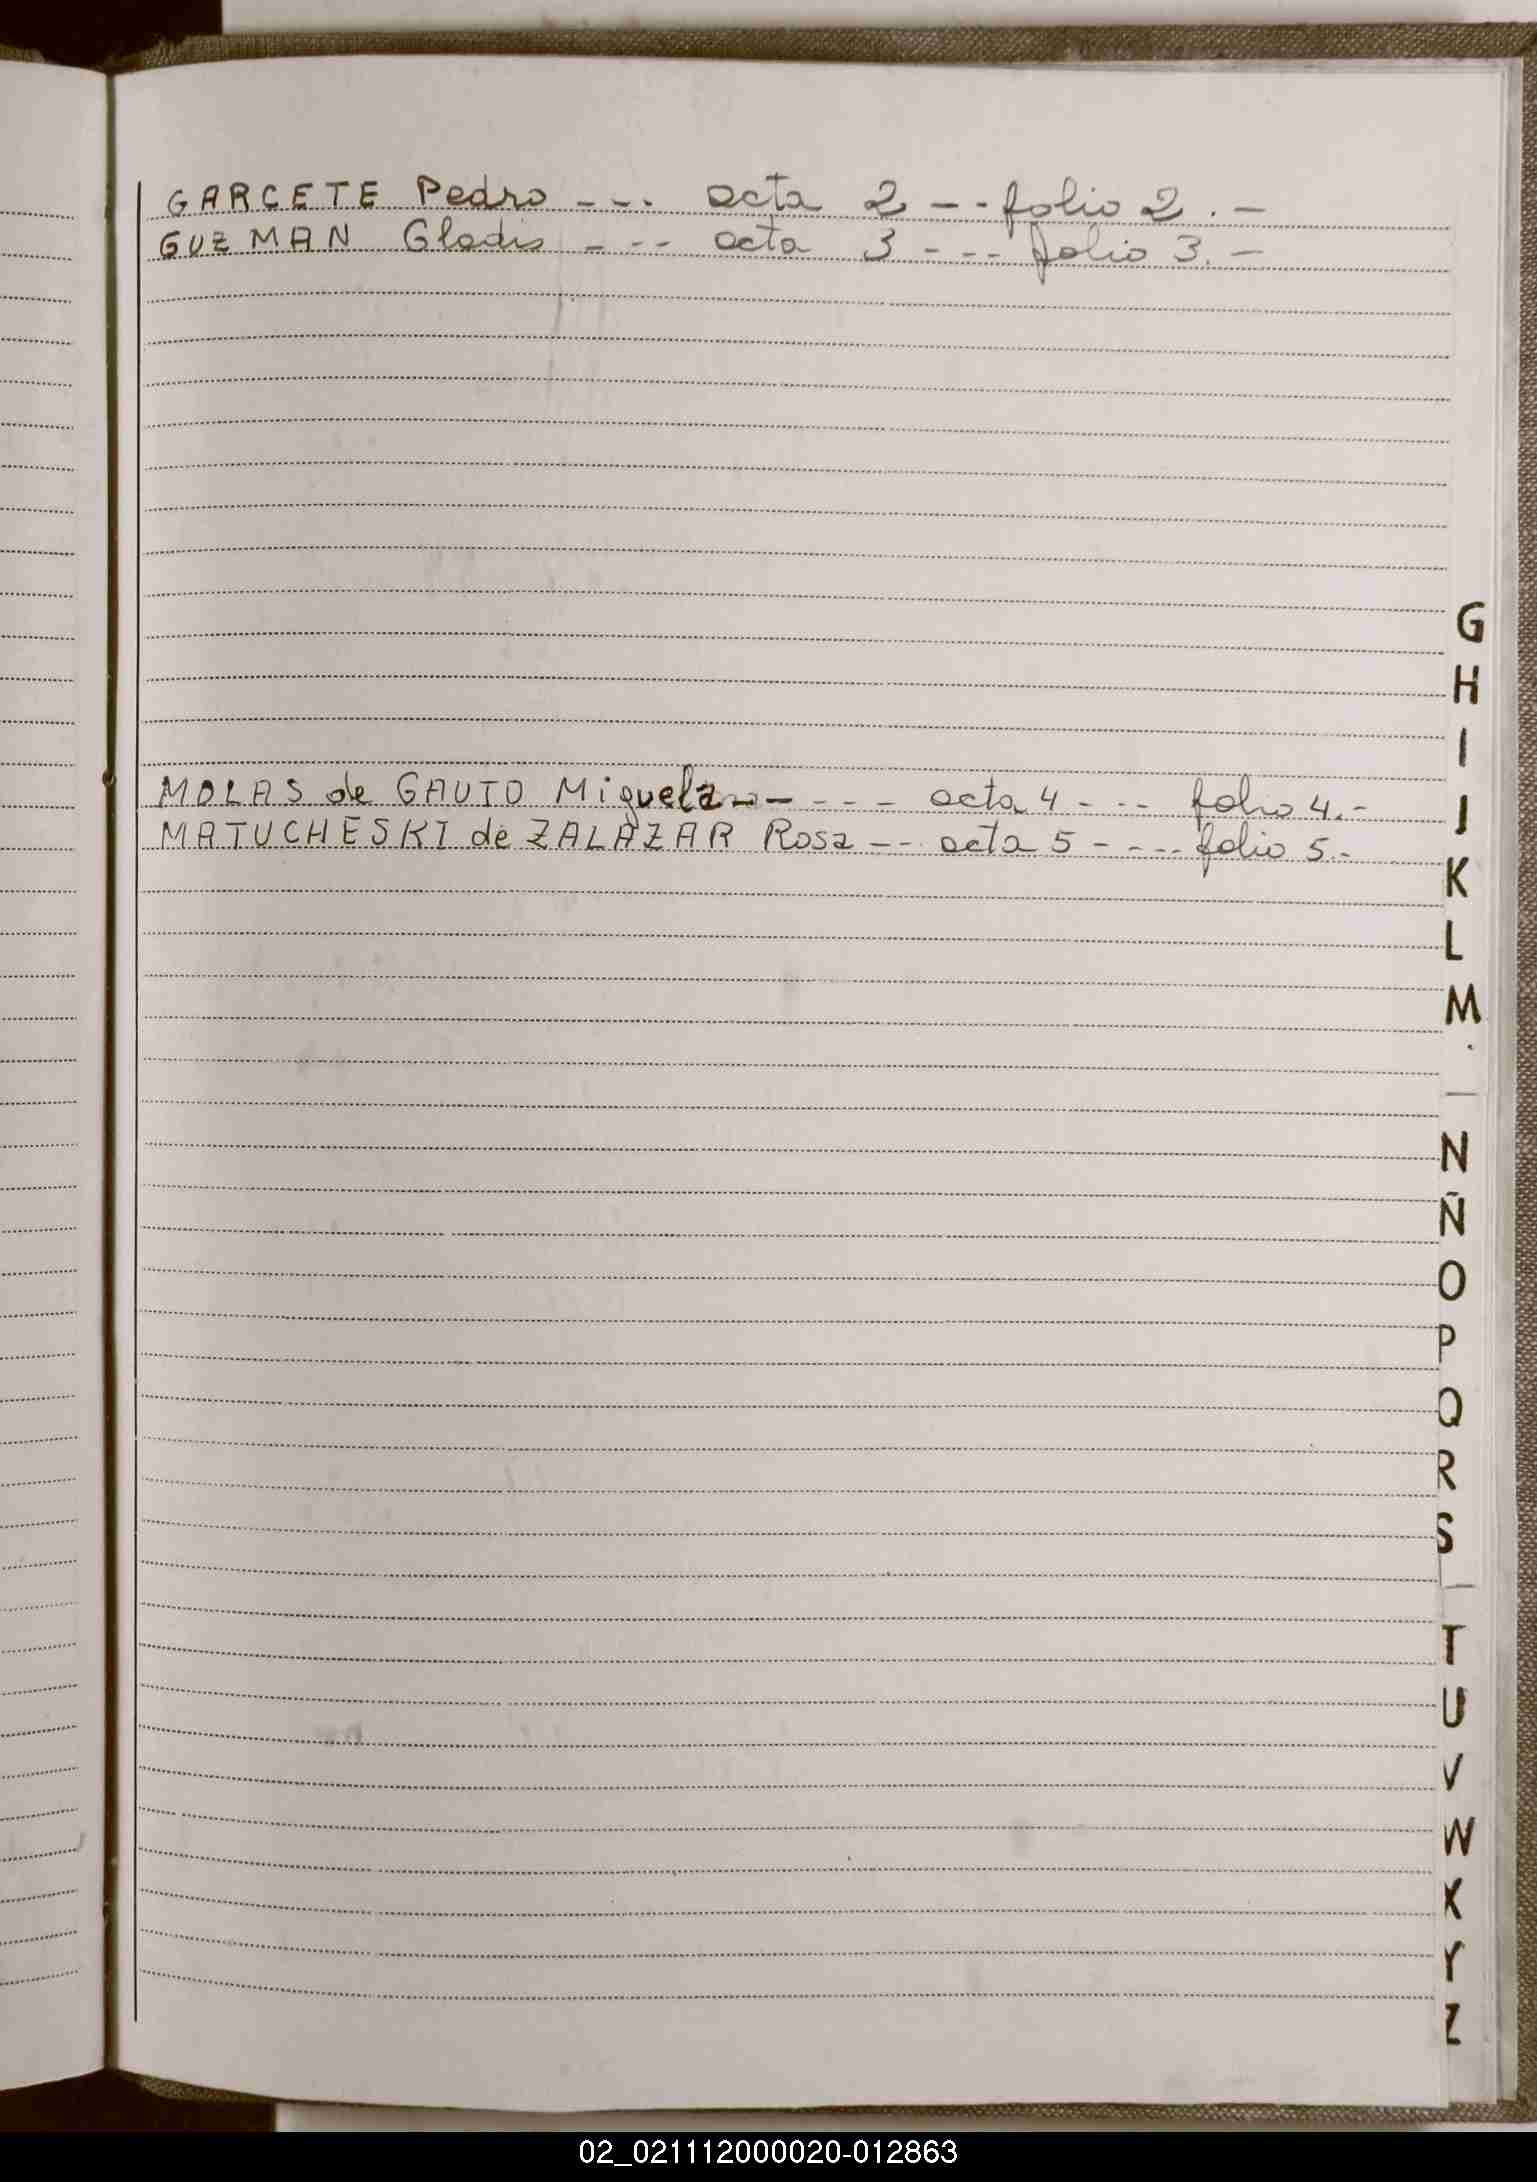 GARCETE Pedro --- acta 2 --- folio 2.-
GUZMAN Gladis --- acta 3 --- folio 3.-
MOLAS de GAUTO Miguela ----- acta 4 --- folio 4.-
MATUCHESKI de ZALAZAR Rosa --- acta 5 ---- folio 5.-
G
H
I
J
K
L
M
N
Ñ
O
P
Q
R
S
T
U
V
W
X
Y
Z
02_021112000020-012863